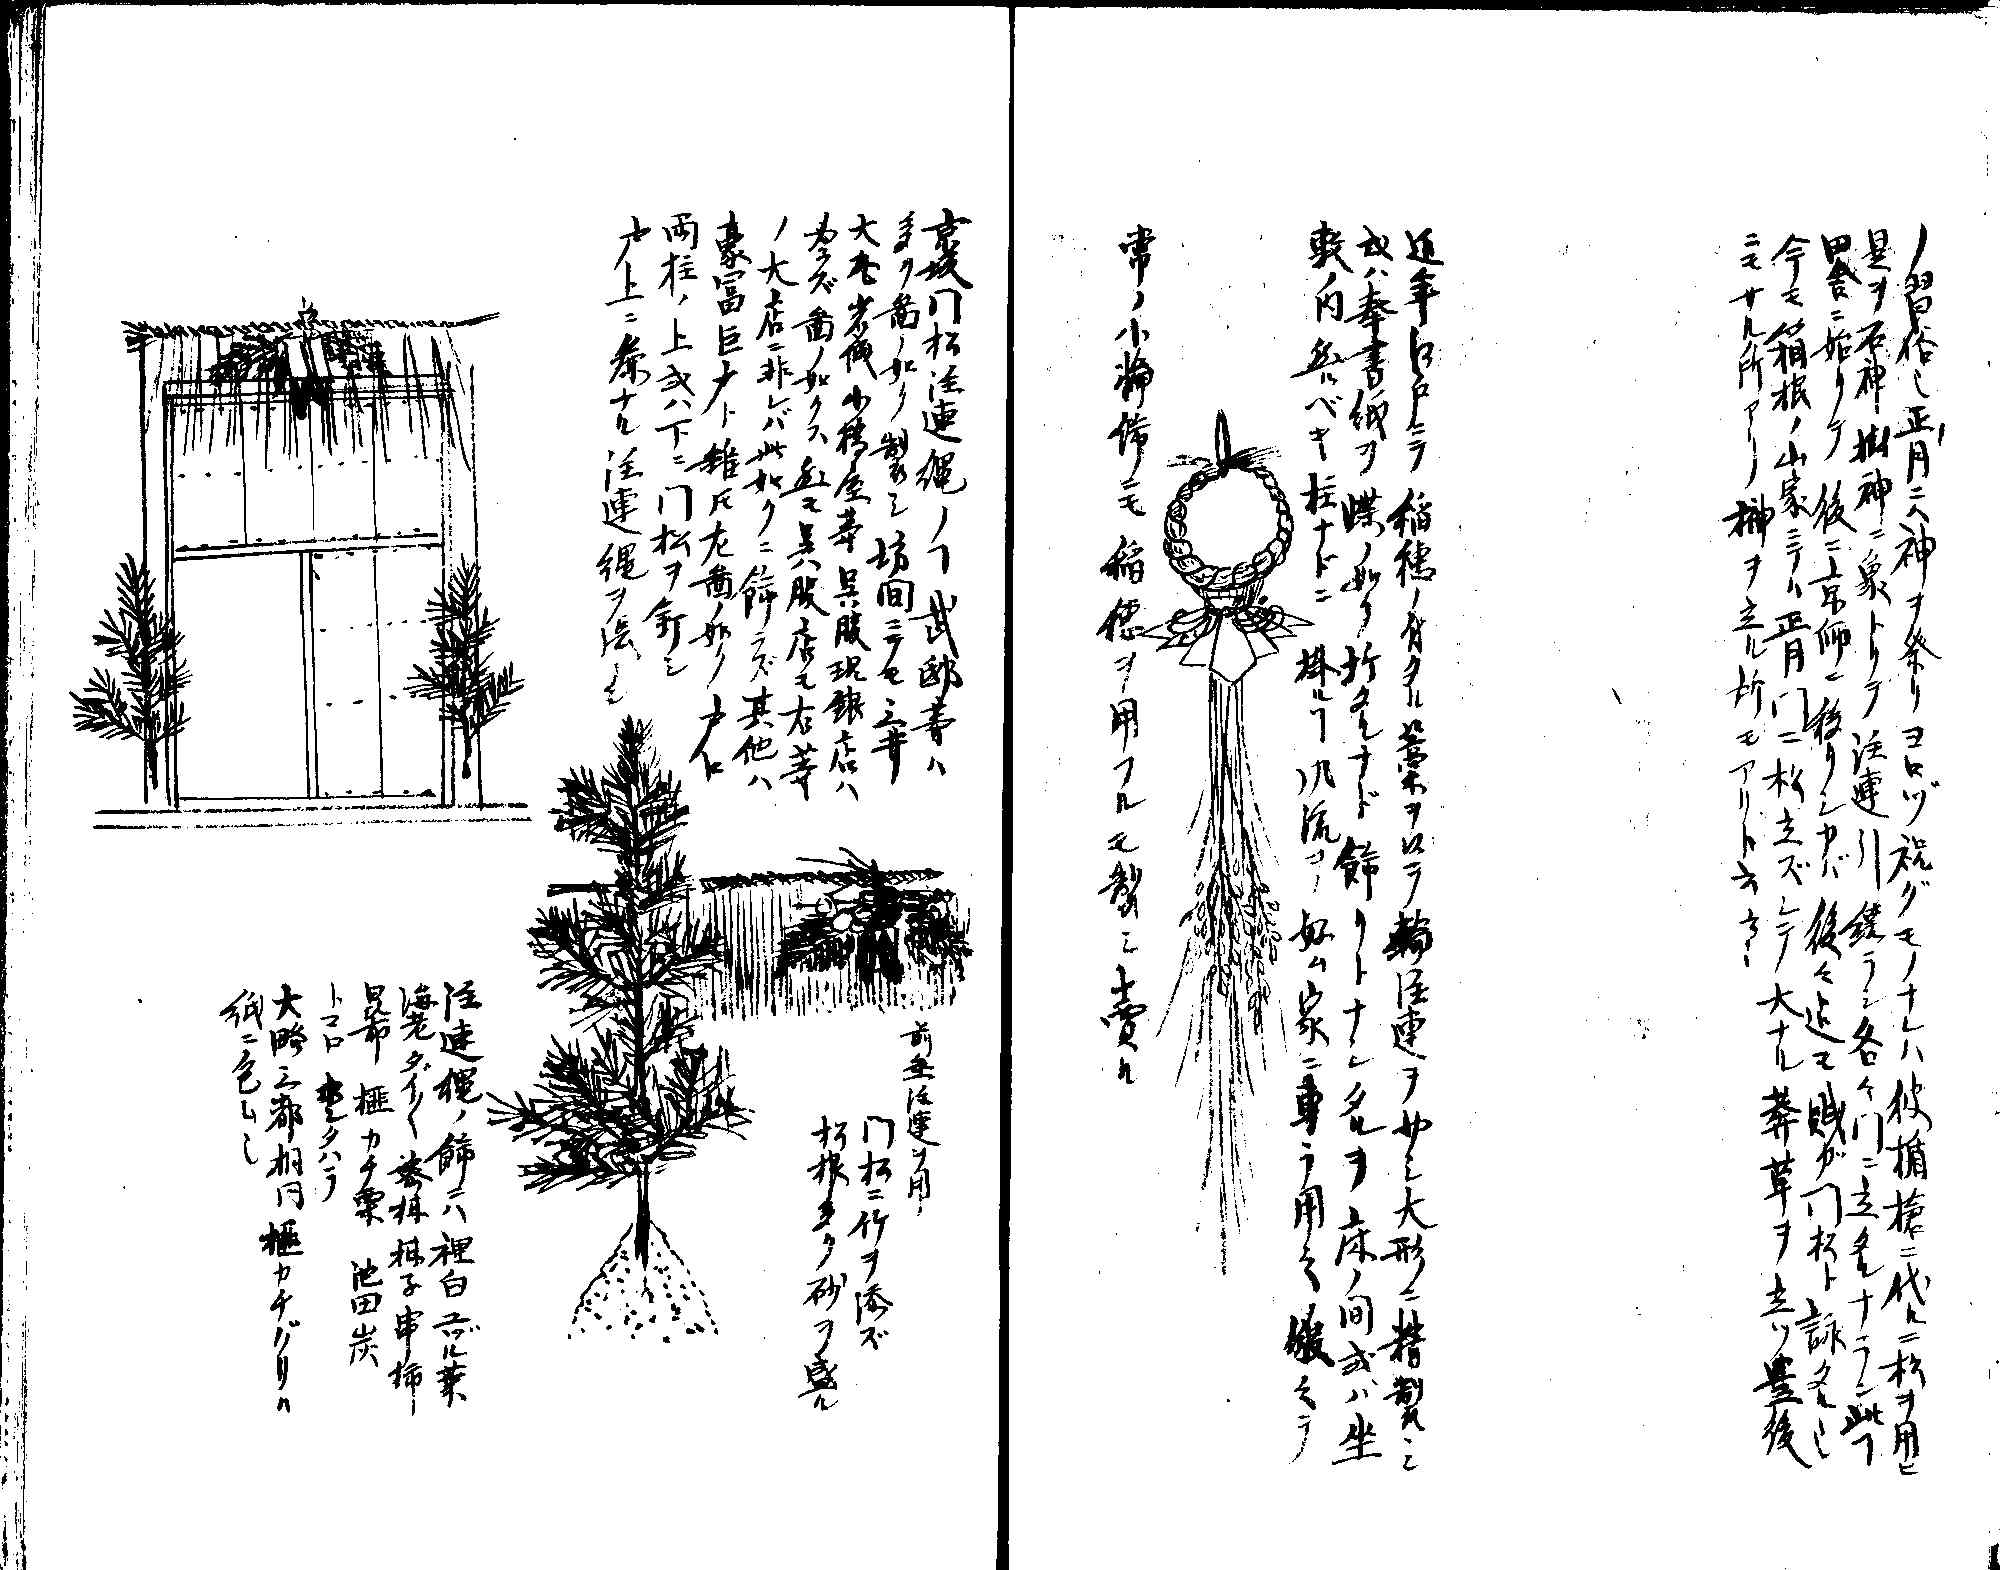 ノ習俗也正月ニハ神ヲ祭リヨロヅ祝グモノナレハ彼楯槍ニ代ルニ松ヲ用ヒ
是ヲ石神樹神ニ象トリテ注連引鏡ラシ各々門ニ立タルナラン此ヿ
田舎ニ始リテ後ニ京師ニ移リシカバ後々迄モ賎ガ門松ト詠タル也
今モ箱根ノ山家ニテハ正月門ニ松立ズシテ大ナル莽草ヲ立ツ豊後
ニモサル所アリ榊ヲ立ル所モアリト云云々
近年江戸ニテ稲穂ノ有タル藁ヲ以テ輪注連ヲ大形ニ精製シ
或ハ奉書紙ヲ蝶ノ如ク折タルナド飾リトナシタルヲ床ノ間或ハ坐
敷ノ内然ルベキ柱ナドニ掛ルヿ風流ヲ好ム家ニ専ラ用之
常ノ小輪飾ニモ稲穂ヲ用フルモ製シ売ル
京坂門松注連縄ノヿ武邸等ハ
多ク図ノ如ク製シ坊間ニテモ三井
大丸岩城小橋屋等呉服現銀店ハ
ズ図ノ如クス然モ呉服店モ右等
ノ大店ニ非レバ此如クニ飾ラズ其他ハ
豪富巨戸ト雖ドモ左図ノ如ク戸口
両柱ノ上或ハ下ニ門松ヲ釘シ
戸上ニ麁ナル注連縄ヲ張ル
前垂注連ヲ用フ
門松ニ竹ヲ添ズ
松根多ク砂ヲ盛ル
注連縄ノ飾ニハ裡白ユヅル葉
海老ダイ〱蜜柑柑子串柿
昆布榧カチ栗池田炭
トコロ ホンダハラ
大略三都相同榧カチグリハ
紙ニ包ム也